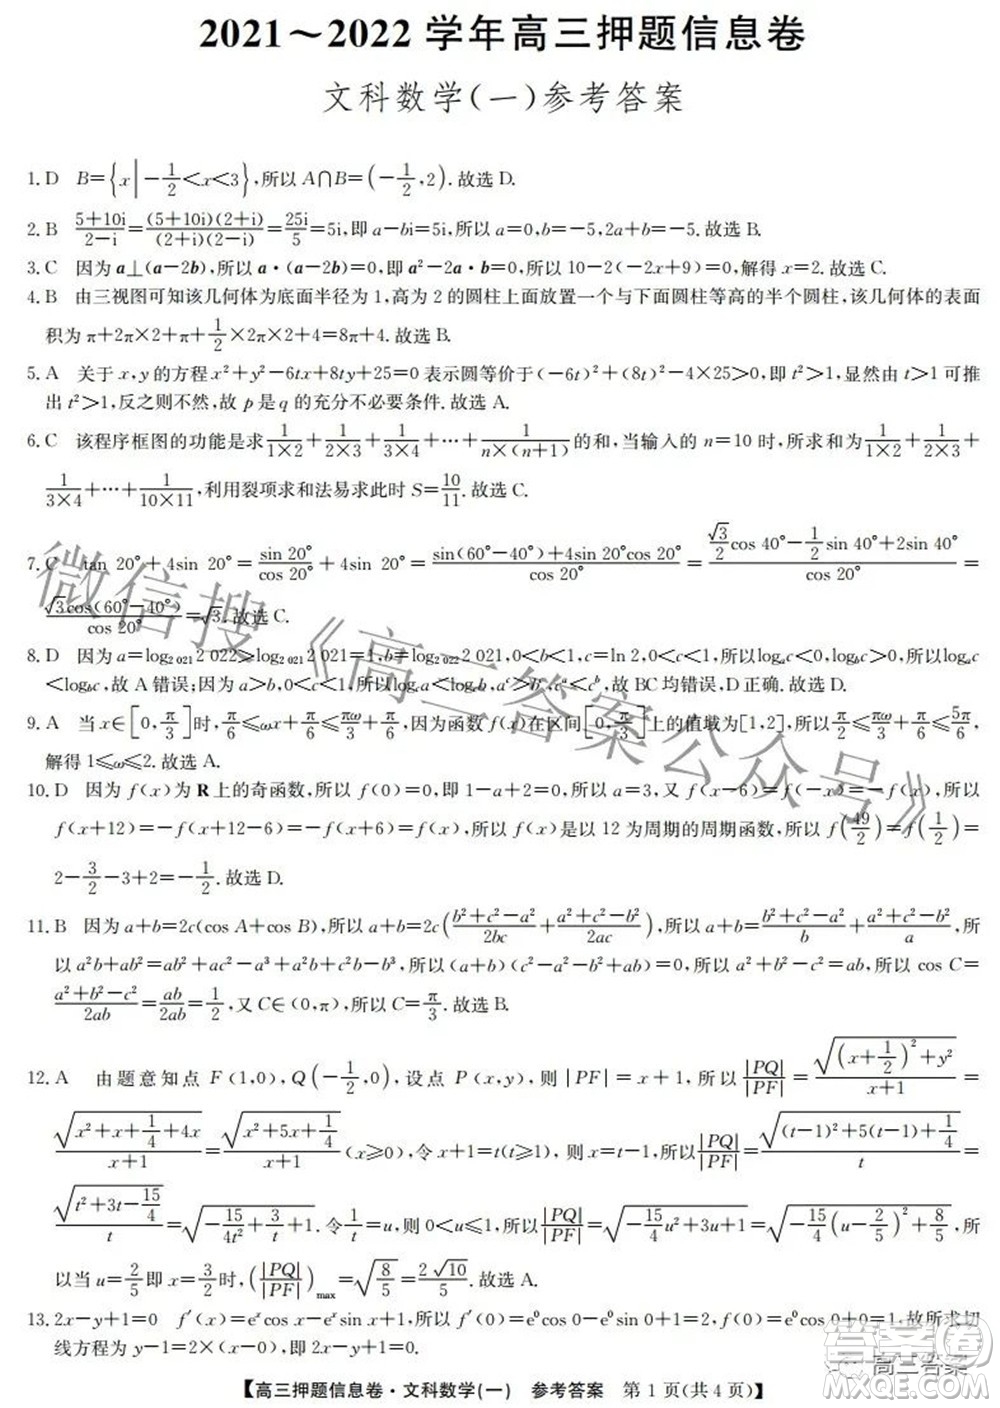 2021～2022 学年高三押题信息卷
文科数学(一)参考答案
1. D B={x|-1/2<x<3},所以 A∩B=(-1/2,2).故选 D.
2. B (5+10i)/(2-i)=(5+10i)(2+i)/(2+i)(2-i)=25i/5=5i,即 a-bi=5i,所以 a=0,b=-5,2a+b=-5.故选 B.
3. C 因为 a⊥(a-2b),所以 a·(a-2b)=0,即 a²-2a·b=0,所以 10-2(-2x+9)=0,解得 x=2.故选 C.
4. B 由三视图可知该几何体为底面半径为 1,高为 2 的圆柱上面放置一个与下面圆柱等高的半个圆柱,该几何体的表面
积为 π+2π×2+π+1/2×2π×2+2×2+4=8π+4.故选 B.
5. A 关于 x,y 的方程 x²+y²-6tx+8ty+25=0 表示圆等价于(-6t)²+(8t)²-4×25>0,即 t²>1,显然由 t>1 可推
出 t²>1,反之则不然,故 p 是 q 的充分不必要条件.故选 A.
6. C 该程序框图的功能是求 1/(1×2)+1/(2×3)+1/(3×4)+…+1/(n×(n+1)) 的和,当输入的 n=10 时,所求为 1/(1×2)+1/(2×3)+
1/(3×4)+…+1/(10×11),利用裂项求和法易求此时 S=10/11.故选 C.
7. C tan 20°+4sin 20°=sin 20°/cos 20°+4sin 20°=(sin(60°-40°)+4sin 20°cos 20°)/cos 20°=(√3/2 cos 40°-1/2 sin 40°+2sin 40°)/cos 20°=
√3cos(60°-40°)/cos 20°=√3.故选 C.
8. D 因为 a=log₂ ₀₂₁2 022>log₂ ₀₂₁2 021=1,b=log₂ ₀₂₂2 021,0<b<1,c=ln 2,0<c<1,所以 logₐc<0,log_b c>0,所以 logₐc
<log_b c,故 A 错误;因为 a>b,0<c<1,所以 log_c a<log_c b,a^c>b^c,c^a<c^b,故 BC 均错误,D 正确.故选 D.
9. A 当 x∈[0,π/3]时,π/6≤ωx+π/6≤πω/3+π/6,因为函数 f(x)在区间[0,π/3]上的值域为[1,2],所以 π/2≤πω/3+π/6≤5π/6,
解得 1≤ω≤2.故选 A.
10. D 因为 f(x)为 R 上的奇函数,所以 f(0)=0,即 1-a+2=0,所以 a=3,又 f(x-6)=f(-x)=-f(x),所以
f(x+12)=-f(x+12-6)=-f(x+6)=f(x),所以 f(x)是以 12 为周期的周期函数,所以 f(49/2)=f(1/2)=
2-3/2-3+2=-1/2.故选 D.
11. B 因为 a+b=2c(cos A+cos B),所以 a+b=2c((b²+c²-a²)/2bc+(a²+c²-b²)/2ac),所以 a+b=(b²+c²-a²)/b+(a²+c²-b²)/a,所
以 a²b+ab²=ab²+ac²-a³+a²b+bc²-b³,所以(a+b)(c²-a²-b²+ab)=0,所以 a²+b²-c²=ab,所以 cos C=
(a²+b²-c²)/2ab=ab/2ab=1/2,又 C∈(0,π),所以 C=π/3.故选 B.
12. A 由题意知点 F(1,0),Q(-1/2,0),设点 P(x,y),则|PF|=x+1,所以 |PQ|/|PF|=√((x+1/2)²+y²)/(x+1)=
√(x²+x+1/4+4x)/(x+1)=√(x²+5x+1/4)/(x+1)(x≥0),令 x+1=t(t≥1),则 x=t-1,所以 |PQ|/|PF|=√((t-1)²+5(t-1)+1/4)/t=
√(t²+3t-15/4)/t=√(-15/4t²+3/t+1).令 1/t=u,则 0<u≤1,所以 |PQ|/|PF|=√(-15/4 u²+3u+1)=√(-15/4(u-2/5)²+8/5),所
以当 u=2/5 即 x=3/2 时,(|PQ|/|PF|)max=√(8/5)=2√10/5.故选 A.
13. 2x-y+1=0 f′(x)=eˣcos x-eˣsin x+1,所以 f′(0)=e⁰cos 0-e⁰sin 0+1=2,f(0)=e⁰cos 0+0=1.故所求切
线方程为 y-1=2×(x-0),即 2x-y+1=0.
【高三押题信息卷·文科数学(一) 参考答案 第 1 页(共 4 页)】
微信搜《高三答案公众号》
高三答案
答案圈
MXQE.COM